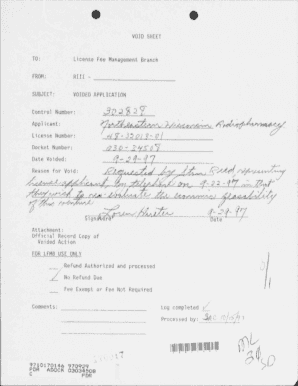 VOID SHEET
TO: License Fee Management Branch
FROM: RIII -
SUBJECT: VOIDED APPLICATION
Control Number: 302829
Applicant: Northeastern Wisconsin Radiopharmacy
License Number: 48-22013-01
Docket Number: 030-24509
Date Voided: 9-29-97
Reason for Void: Requested by Steve Reed representing
license applicant, on telephone on 9-22-97 in that
they need to re-evaluate the economic feasibility
of this venture
Signature Date 9-29-97
Attachment:
Official Record Copy of
Voided Action
FOR LFMB USE ONLY
Refund Authorized and processed
No Refund Due
Fee Exempt or Fee Not Required
Comments: Log completed
Processed by:
9710170146 970929
PDR ADOCK 03024509
C PDR